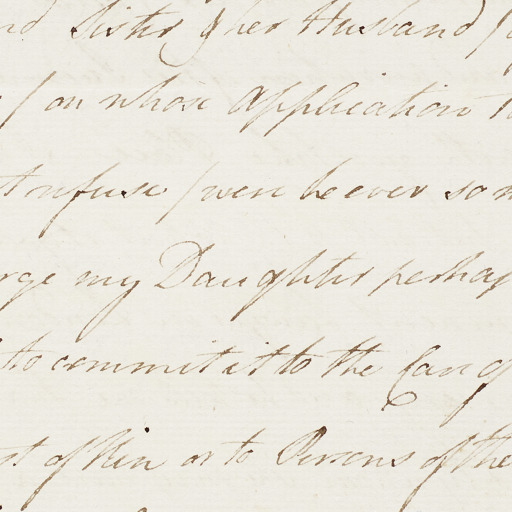 Sister & her Husband
on whose Application
refuse / were he ever so
my Daughter perhap
to commit it to the Care of
of Kin or to Persons of the